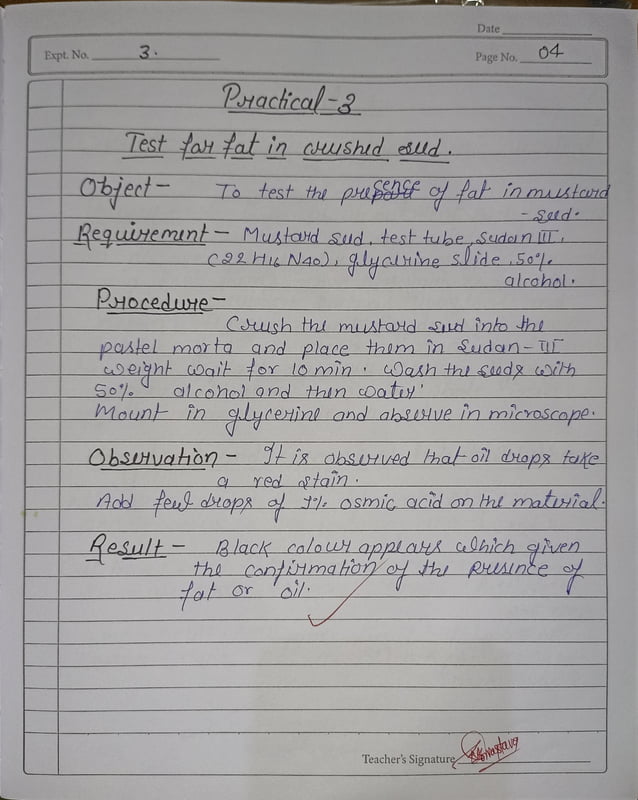 Date
Expt. No. 3.
Page No. 04
Practical-3
Test for fat in crushed seed.
Object- To test the presence of fat in mustard
-seed.
Requirement- Mustard seed, test tube, Sudan III,
(C22 H16 N40), glycerine slide, 50%
alcohol.
Procedure-
Crush the mustard seed into the
pastel morta and place them in Sudan-III
weight wait for 10 min. Wash the seeds with
50% alcohol and then water.
Mount in glycerine and observe in microscope.
Observation- It is observed that oil drops take
a red stain.
Add few drops of 1% osmic acid on the material.
Result- Black colour appears which given
the confirmation of the presence of
fat or oil.
Teacher's Signature